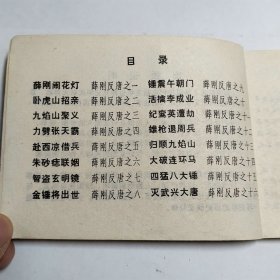 目录
薛刚闹花灯 薛刚反唐之一
卧虎山招亲 薛刚反唐之二
九焰山聚义 薛刚反唐之三
力劈张天霸 薛刚反唐之四
赴西凉借兵 薛刚反唐之五
朱砂痣联姻 薛刚反唐之六
智盗玄明镜 薛刚反唐之七
金锤将出世 薛刚反唐之八
锤震午朝门 薛刚反唐之九
活擒李成业 薛刚反唐之十
纪鸾英遭劫 薛刚反唐之十一
雄枪退周兵 薛刚反唐之十二
归顺九焰山 薛刚反唐之十三
大破连环马 薛刚反唐之十四
四猛八大锤 薛刚反唐之十五
灭武兴大唐 薛刚反唐之十六